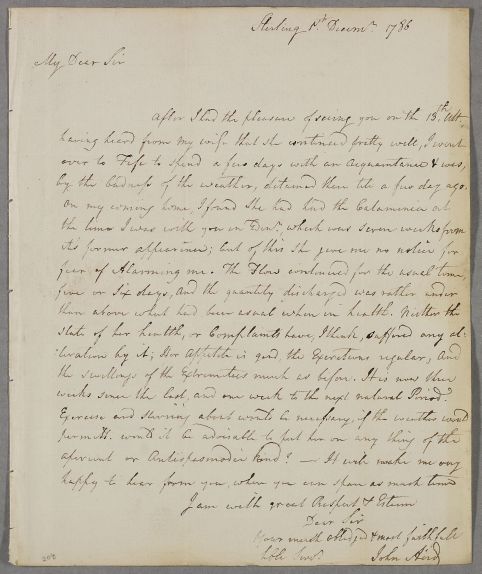 Sterling 1st Decemr. 1786
My Dear Sir
After I had the pleasure of seeing you on the 13th. Ult.
having heard from my wife that she continued pretty well, I went
over to Fife to spend a few days with an acquaintance & was,
by the badness of the weather, detained there till a few day ago.
On my coming home, I found she had had the Catamenia at
the time I was with you in Edinr. which was seven weeks from
its former appearance; but of this she gave me no notice for
fear of Alarming me. The Flow continued for the usual time,
five or Six days, and the quantity discharged was rather under
than above what had been usual when in health. Neither the
State of her health, or Complaints have, I think, suffered any al-
:teration by it; Her Appetite is good, the Excretions regular, and
the swellings of the Extremities much as before. It is now three
weeks since the last, and one week to the next natural Period.
Exercise and stirring about would be necessary, if the weather would
permitt. would it be advisable to put her on any thing of the
aperient or Antispasmodic kind? — It will make me very
happy to hear from you, when you can spare as much time
I am with great Respect & Esteem
Dear Sir
Your much obliged & most faithfull
hble Servt. John Aird